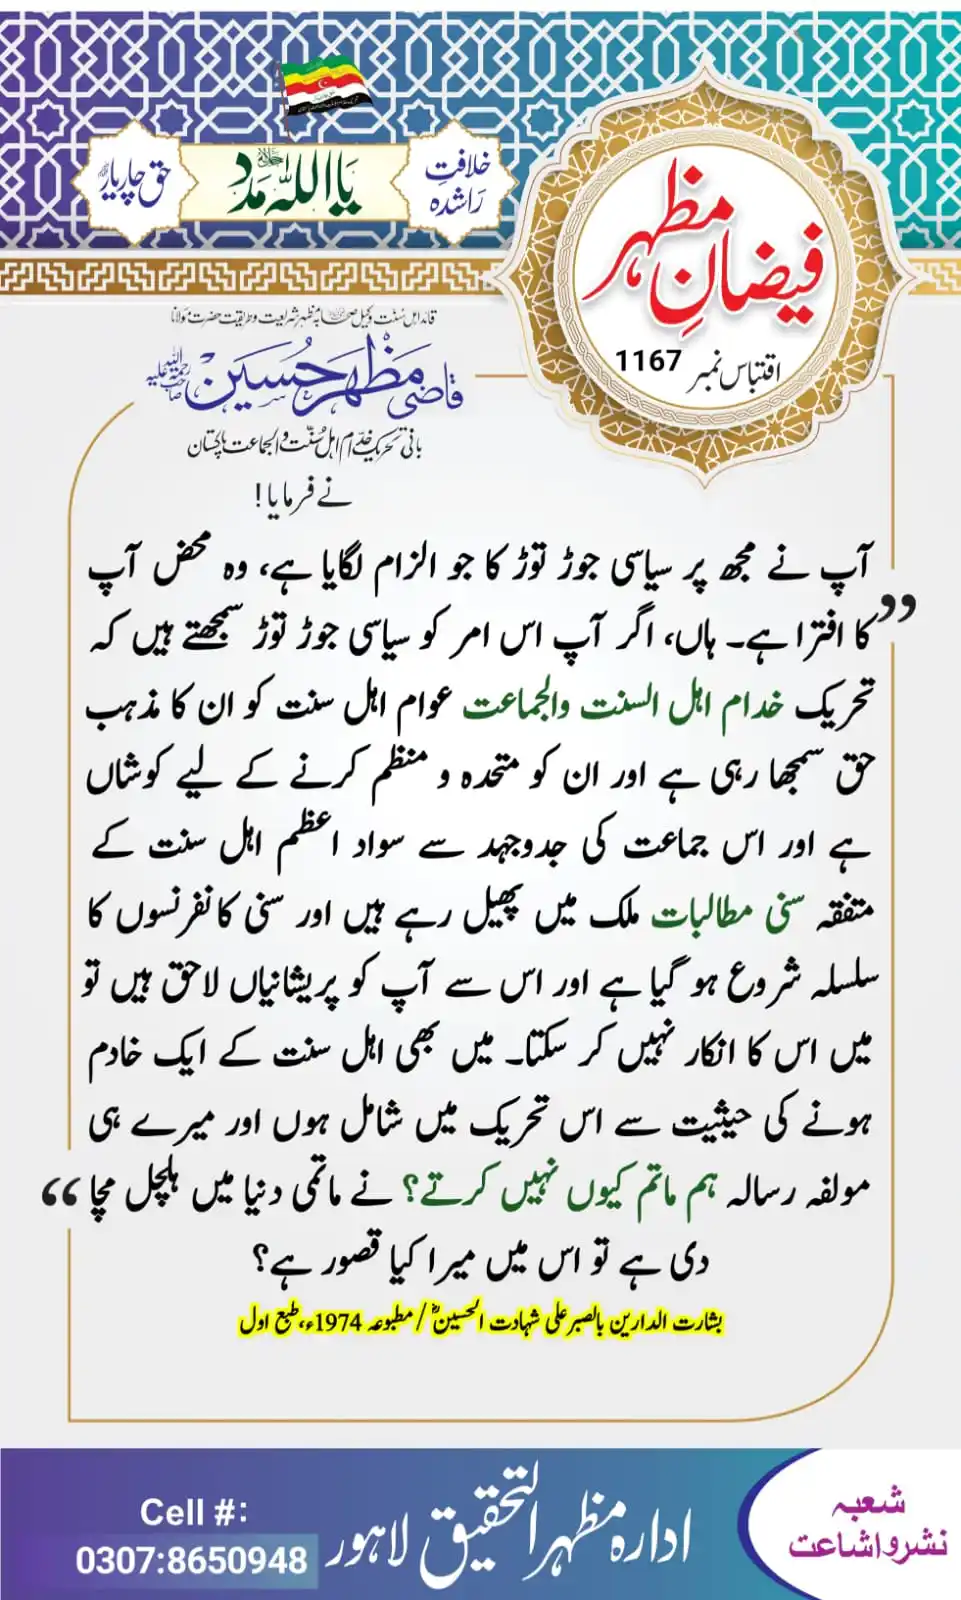 خلافتِ راشدہ
یا اللہ مدد
حق چار یارؓ
فیضانِ مظہر
اقتباس نمبر 1167
قائد اہل سنت وکیل صحابہ مظہر شریعت و طریقت حضرت مولانا
قاضی مظہر حسین رحمۃ اللہ علیہ صاحب
بانی تحریک خدام اہل سنت والجماعت پاکستان
نے فرمایا!
آپ نے مجھ پر سیاسی جوڑ توڑ کا جو الزام لگایا ہے، وہ محض آپ
کا افترا ہے۔ ہاں، اگر آپ اس امر کو سیاسی جوڑ توڑ سمجھتے ہیں کہ
تحریک خدام اہل السنت والجماعت عوام اہل سنت کو ان کا مذہب
حق سمجھا رہی ہے اور ان کو متحدہ و منظم کرنے کے لیے کوشاں
ہے اور اس جماعت کی جدوجہد سے سواد اعظم اہل سنت کے
متفقہ سنی مطالبات ملک میں پھیل رہے ہیں اور سنی کانفرنسوں کا
سلسلہ شروع ہو گیا ہے اور اس سے آپ کو پریشانیاں لاحق ہیں تو
میں اس کا انکار نہیں کر سکتا۔ میں بھی اہل سنت کے ایک خادم
ہونے کی حیثیت سے اس تحریک میں شامل ہوں اور میرے ہی
مولفہ رسالہ ہم ماتم کیوں نہیں کرتے؟ نے ماتمی دنیا میں ہلچل مچا
دی ہے تو اس میں میرا کیا قصور ہے؟
بشارت الدارین بالصبر علی شہادت الحسینؓ / مطبوعہ 1974ء، طبع اول
شعبہ
نشر و اشاعت
ادارہ مظہر التحقیق لاہور
Cell #:
0307:8650948